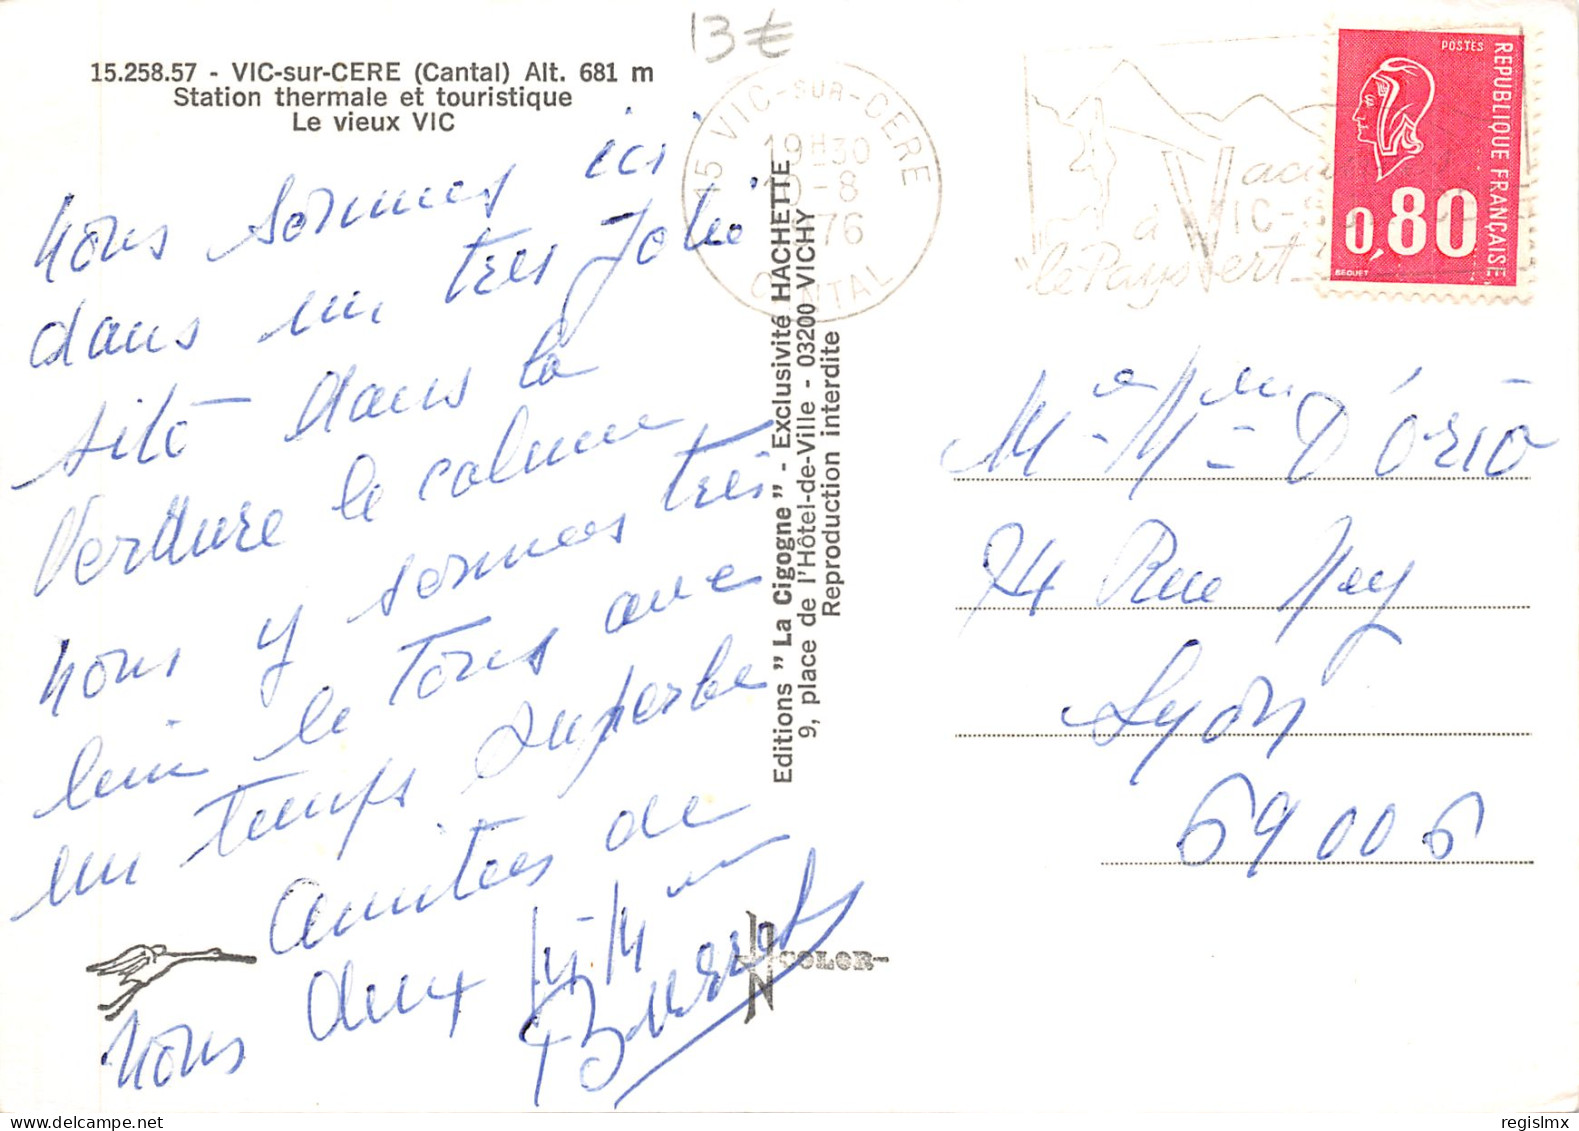 13€
15.258.57 - VIC-sur-CERE (Cantal) Alt. 681 m
Station thermale et touristique
Le vieux VIC
nous sommes ici
dans un très joli
sité dans la
Verdure le calme
nous y sommes très
bien le Tous avec
un temps superbe
Amitées de
nous deux
15 VIC-SUR-CERE
19H30
-8
1976
CANTAL
Vacances
à VIC-S
"le Pays Vert
POSTES
REPUBLIQUE FRANÇAISE
0,80
BEQUET
Editions "La Cigogne" - Exclusivité HACHETTE
9, place de l'Hôtel-de-Ville - 03200 VICHY
Reproduction interdite
COLOR
Mr Mme D'Orio
74 Rue Ney
Lyon
69006
regislmx